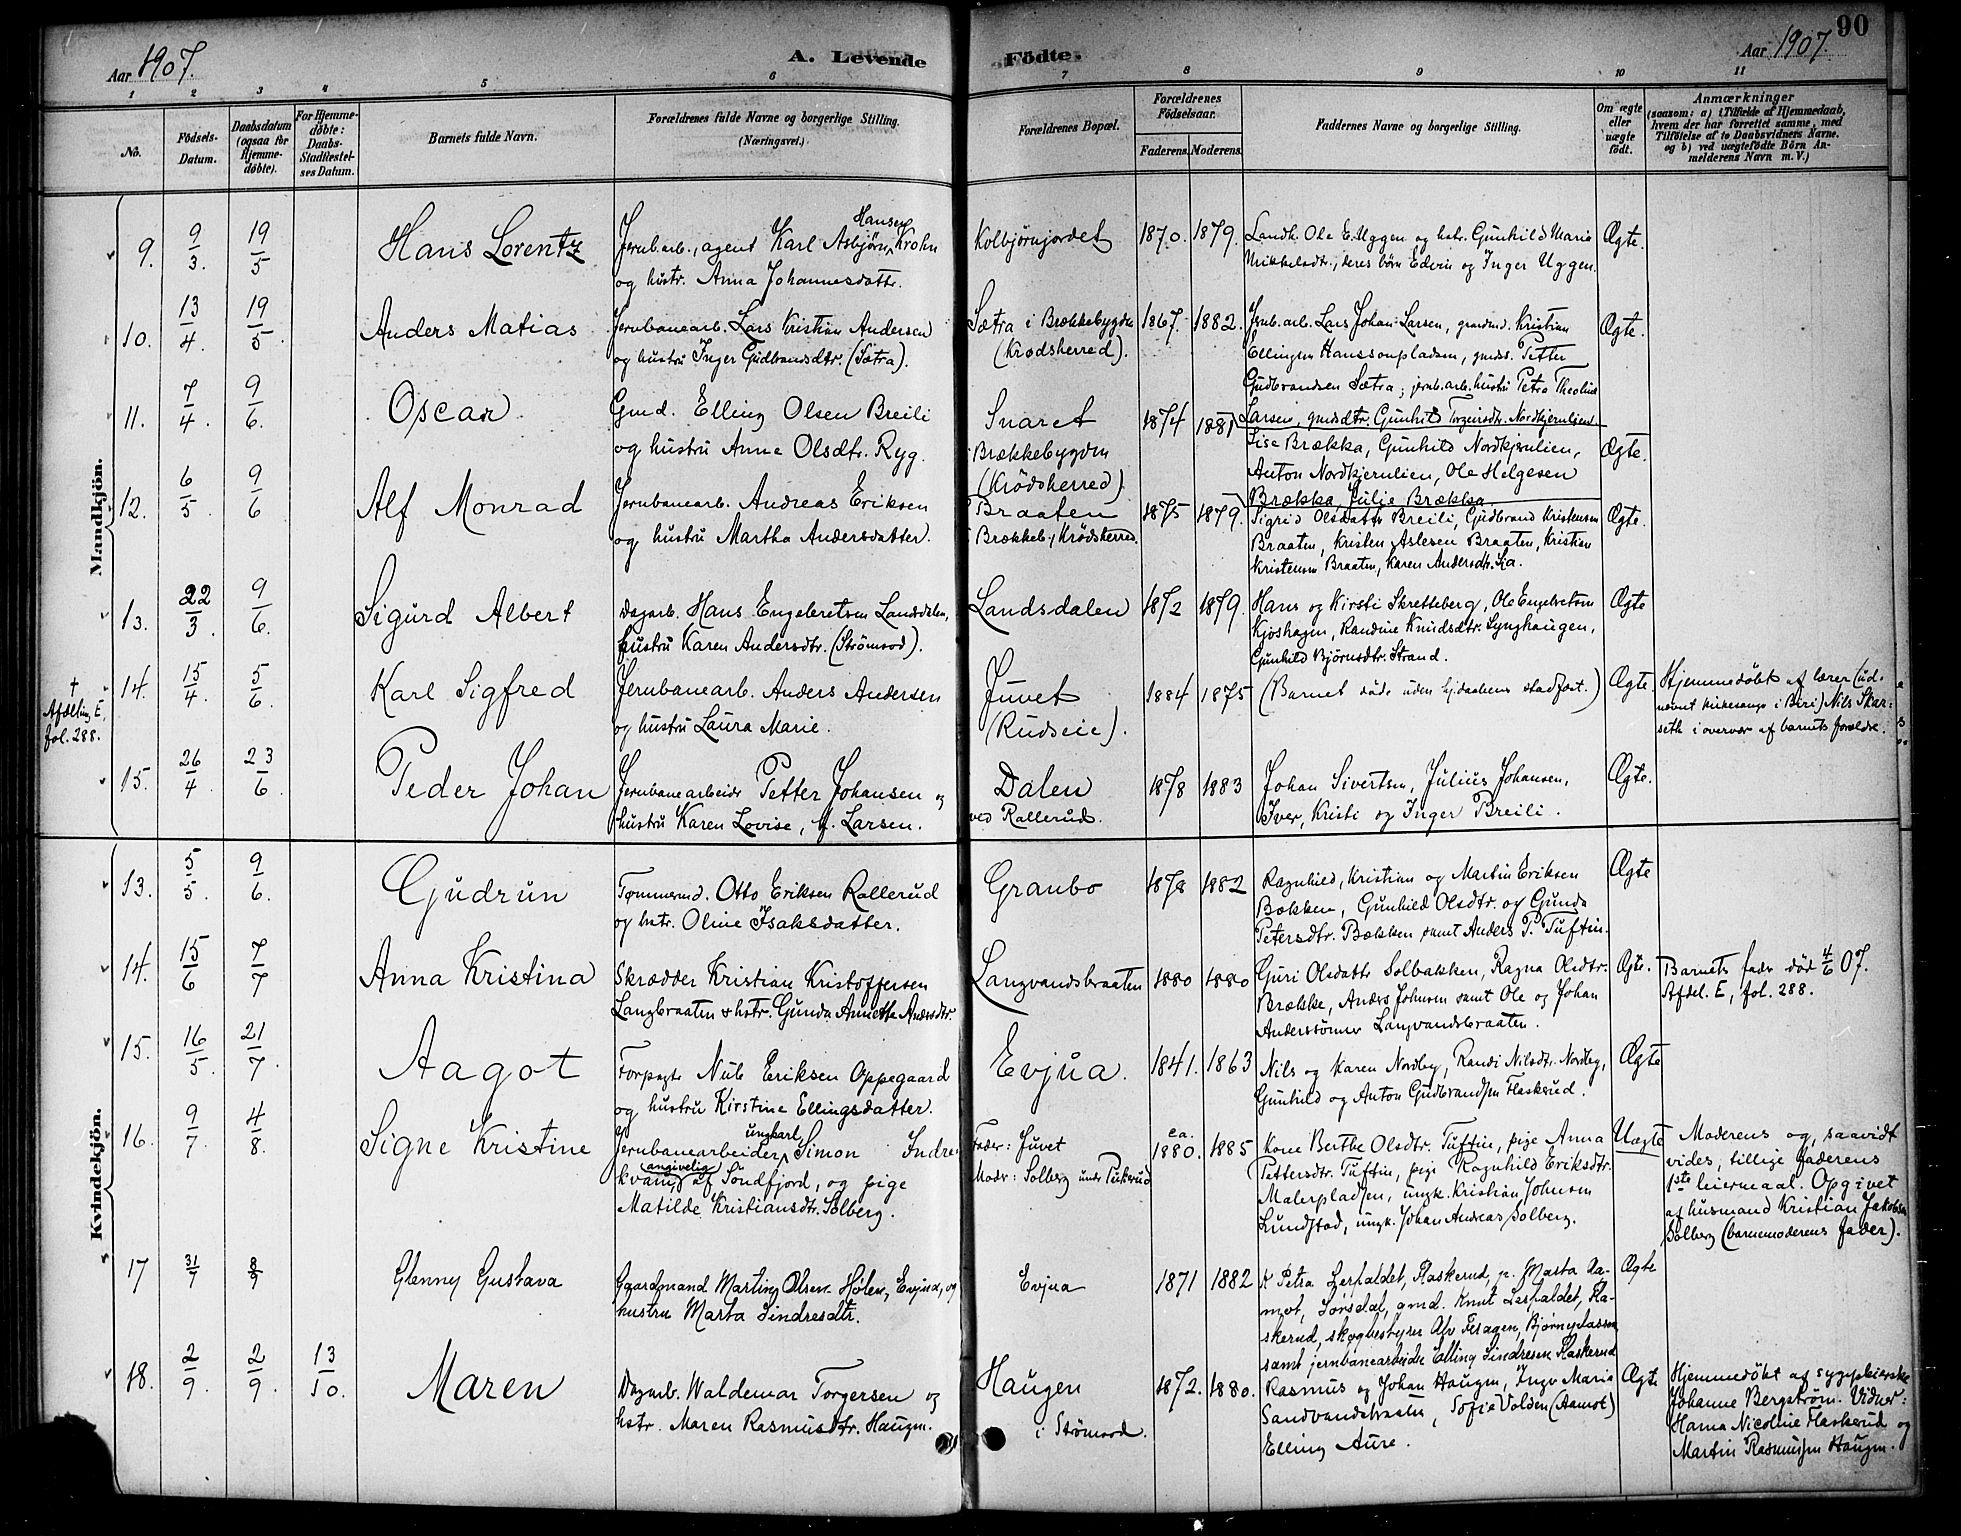 90
Aar 1907.
A. Levende
Födte.
Aar 1907.
1 2 3 4 5 6 7 8 9 10 11
No.
Födsels-
Datum.
Daabsdatum
(ogsaa for
Hjemme-
döbte).
For Hjemme-
döbte:
Daabs-
Stadfæstel-
ses Datum.
Barnets fulde Navn.
Forældrenes fulde Navne og borgerlige Stilling.
(Næringsvei.)
Forældrenes Bopæl.
Forældrenes
Födselsaar.
Faderens. Moderens.
Faddernes Navne og borgerlige Stilling.
Om ægte
eller
uægte
födt.
Anmærkninger
(saasom: a) i Tilfælde af Hjemmedaab,
hvem der har forrettet samme, med
Tilföielse af to Daabsvidners Navne.
og b) ved uægtefödte Börn An-
melderens Navn m.V.)
Mandkjön.
9. 9/3. 19/5 Hans Lorentz
Jernb.arb., agent Karl Asbjørn Hansen Krohn
og hustr. Anna Johannesdattr.
Kolbjørnjordet 1870. 1879.
Landh. Ole E. Uggen og hstr. Gunhild Marie
Mikkelsdtr., deres børn Edvin og Inger Uggen.
Ægte.
10. 13/4. 19/5. Anders Matias
Jernbanearb. Lars Kristian Andersen
og hustru Inger Gudbrandsdtr. (Sætra).
Sætra i Brækkebygden
(Krødsherred).
1867. 1882.
Jernb.arb. Lars Johan Larsen, grændmd. Kristian
Ellingsen Hanssonpladsen, gmds. Petter
Gudbrandsen Sætra; jernb.arb. hustru Petra Theoline
Larsen, gmdsdtr. Gunhild Torgeirsdtr. Nordkjernlien
Ægte.
11. 7/4. 9/6. Oscar
Gmd. Elling Olsen Breili
og hustru Anne Olsdtr. Ryg.
Snaret
Brækkebygden
(Krødsherred)
1874 1881
Lise Brækka, Gunhild Nordkjernlien,
Anton Nordkjernlien, Ole Helgesen
Brækka, Julie Brækka
Ægte.
12. 6/5. 9/6 Alf Monrad
Jernbanearb. Andreas Eriksen
og hustru Martha Andersdatter.
Braaten
i Brækkeb., Krødsherred.
1875 1879.
Sigrid Olsdattr Breili, Gudbrand Kristensen
Braaten, Kristen Aslesen Braaten, Kristian
Kristensen Braaten, Karen Andersdtr. Lia.
Ægte.
13. 22/3. 9/6. Sigurd Albert
Dagarb. Hans Engebretsen Landsdalen,
hustru Karen Andersdtr. (Strømsod).
Landsdalen 1872 1879.
Hans og Kirsti Skretteberg, Ole Engebretsen
Kjøshagen, Randine Knudsdtr. Lynghaugen,
Gunhild Bjørnsdtr. Strand.
Ægte
† Afdeling E,
fol. 288.
14. 15/4. 5/6. Karl Sigfred
Jernbanearb. Anders Andersen
og hustru Laura Marie.
Juvet
(Rudseie).
1884 1875
(Barnet døde uden hj.daabens stadfæst.)
Ægte.
Hjemmedøbt af lærer (ud-
nævnt kirkesanger i Biri) Nils Skar-
seth i overvær af barnets forældre.
15. 26/4. 23/6. Peder Johan
Jernbanearbeider Petter Johansen og
hustru Karen Lovise, f. Larsen.
Dalen
ved Rallerud.
1878 1883
Johan Sivertsen, Julius Johansen,
Iver, Kristi og Inger Breili.
Ægte.
Kvindekjön.
13. 5/5. 9/6. Gudrun
Tømmermd. Otto Eriksen Rallerud
og hstr. Oline Isaksdatter.
Granbo 1878 1882
Ragnhild, Kristian og Martin Eriksen
Bækken, Gunhild Olsdtr. og Gunda
Petersdtr. Bækken samt Anders P. Tuftin.
Ægte
14. 15/6 7/7 Anna Kristina
Skrædder Kristian Kristoffersen
Langbraaten & hstr. Gunda Annette Andersdtr.
Langvandsbraaten 1880 1880
Guri Olsdattr Solbakken, Ragna Olsdtr.
Brække, Anders Johnsen samt Ole og Johan
Anderssønner Langvandsbraaten.
Ægte.
Barnets fader død 4/6 07.
Afdel. E, fol. 288.
15. 16/5. 21/7. Aagot
Forpagter Nils Eriksen Oppegaard
og hustru Kirstine Ellingsdatter.
Evjua. 1841. 1863
Nils og Karen Nordby, Randi Nilsdtr. Nordby,
Gunhild og Anton Gudbrandsen Flaskerud.
Ægte
16. 9/7. 4/8. Signe Kristine
Jernbanearbeider, ungkarl Simon Indre-
kvam, angivelig af Søndfjord, og pige
Matilde Kristiansdtr. Solberg.
Fader: Juvet
Moder: Solberg under Pukerud
ca. 1880. 1885
Kone Berthe Olsdtr. Tuftin, pige Anna
Pettersdtr. Tuftin, pige Ragnhild Eriksdtr.
Malerpladsen, ungk. Kristian Johnsen
Lundstad, ungk. Johan Andreas Solberg.
Uægte
Moderens og, saavidt
vides, tillige faderens
1ste leiermaal. Opgivet
af husmand Kristian Jakobsen
Solberg (barnemoderens fader).
17 31/7 8/9 Glenny Gustava
Gaardmand Martin Olsen Hølen, Evjua, og
hustru Marta Sindresdtr.
Evjua 1871 1882
K Petra Lerfaldet, Flaskerud, p. Marta Ra-
mot, Sorsdal, gmd. Knut Lerfaldet, Fla-
skerud, skogbestyrer Alv Fesagen,
samt jernbanearbeider Elling Sindresen Flaskerud
Ægte
18. 2/9. 2/9. 13/10. Maren
Dagarb. Waldemar Torgersen og
hstr. Maren Rasmusdtr. Haugen.
Haugen
i Strømsod.
1872. 1880.
Rasmus og Johan Haugen, Inga Maria
Sandvandsbraaten, Sofie Volden (Aamot)
Elling Aure.
Ægte
Hjemmedøbt af sygepleierske
Johanne Bergstrøm. Vidner:
Hanna Nicoline Flaskerud og
Martin Rasmussen Haugen.